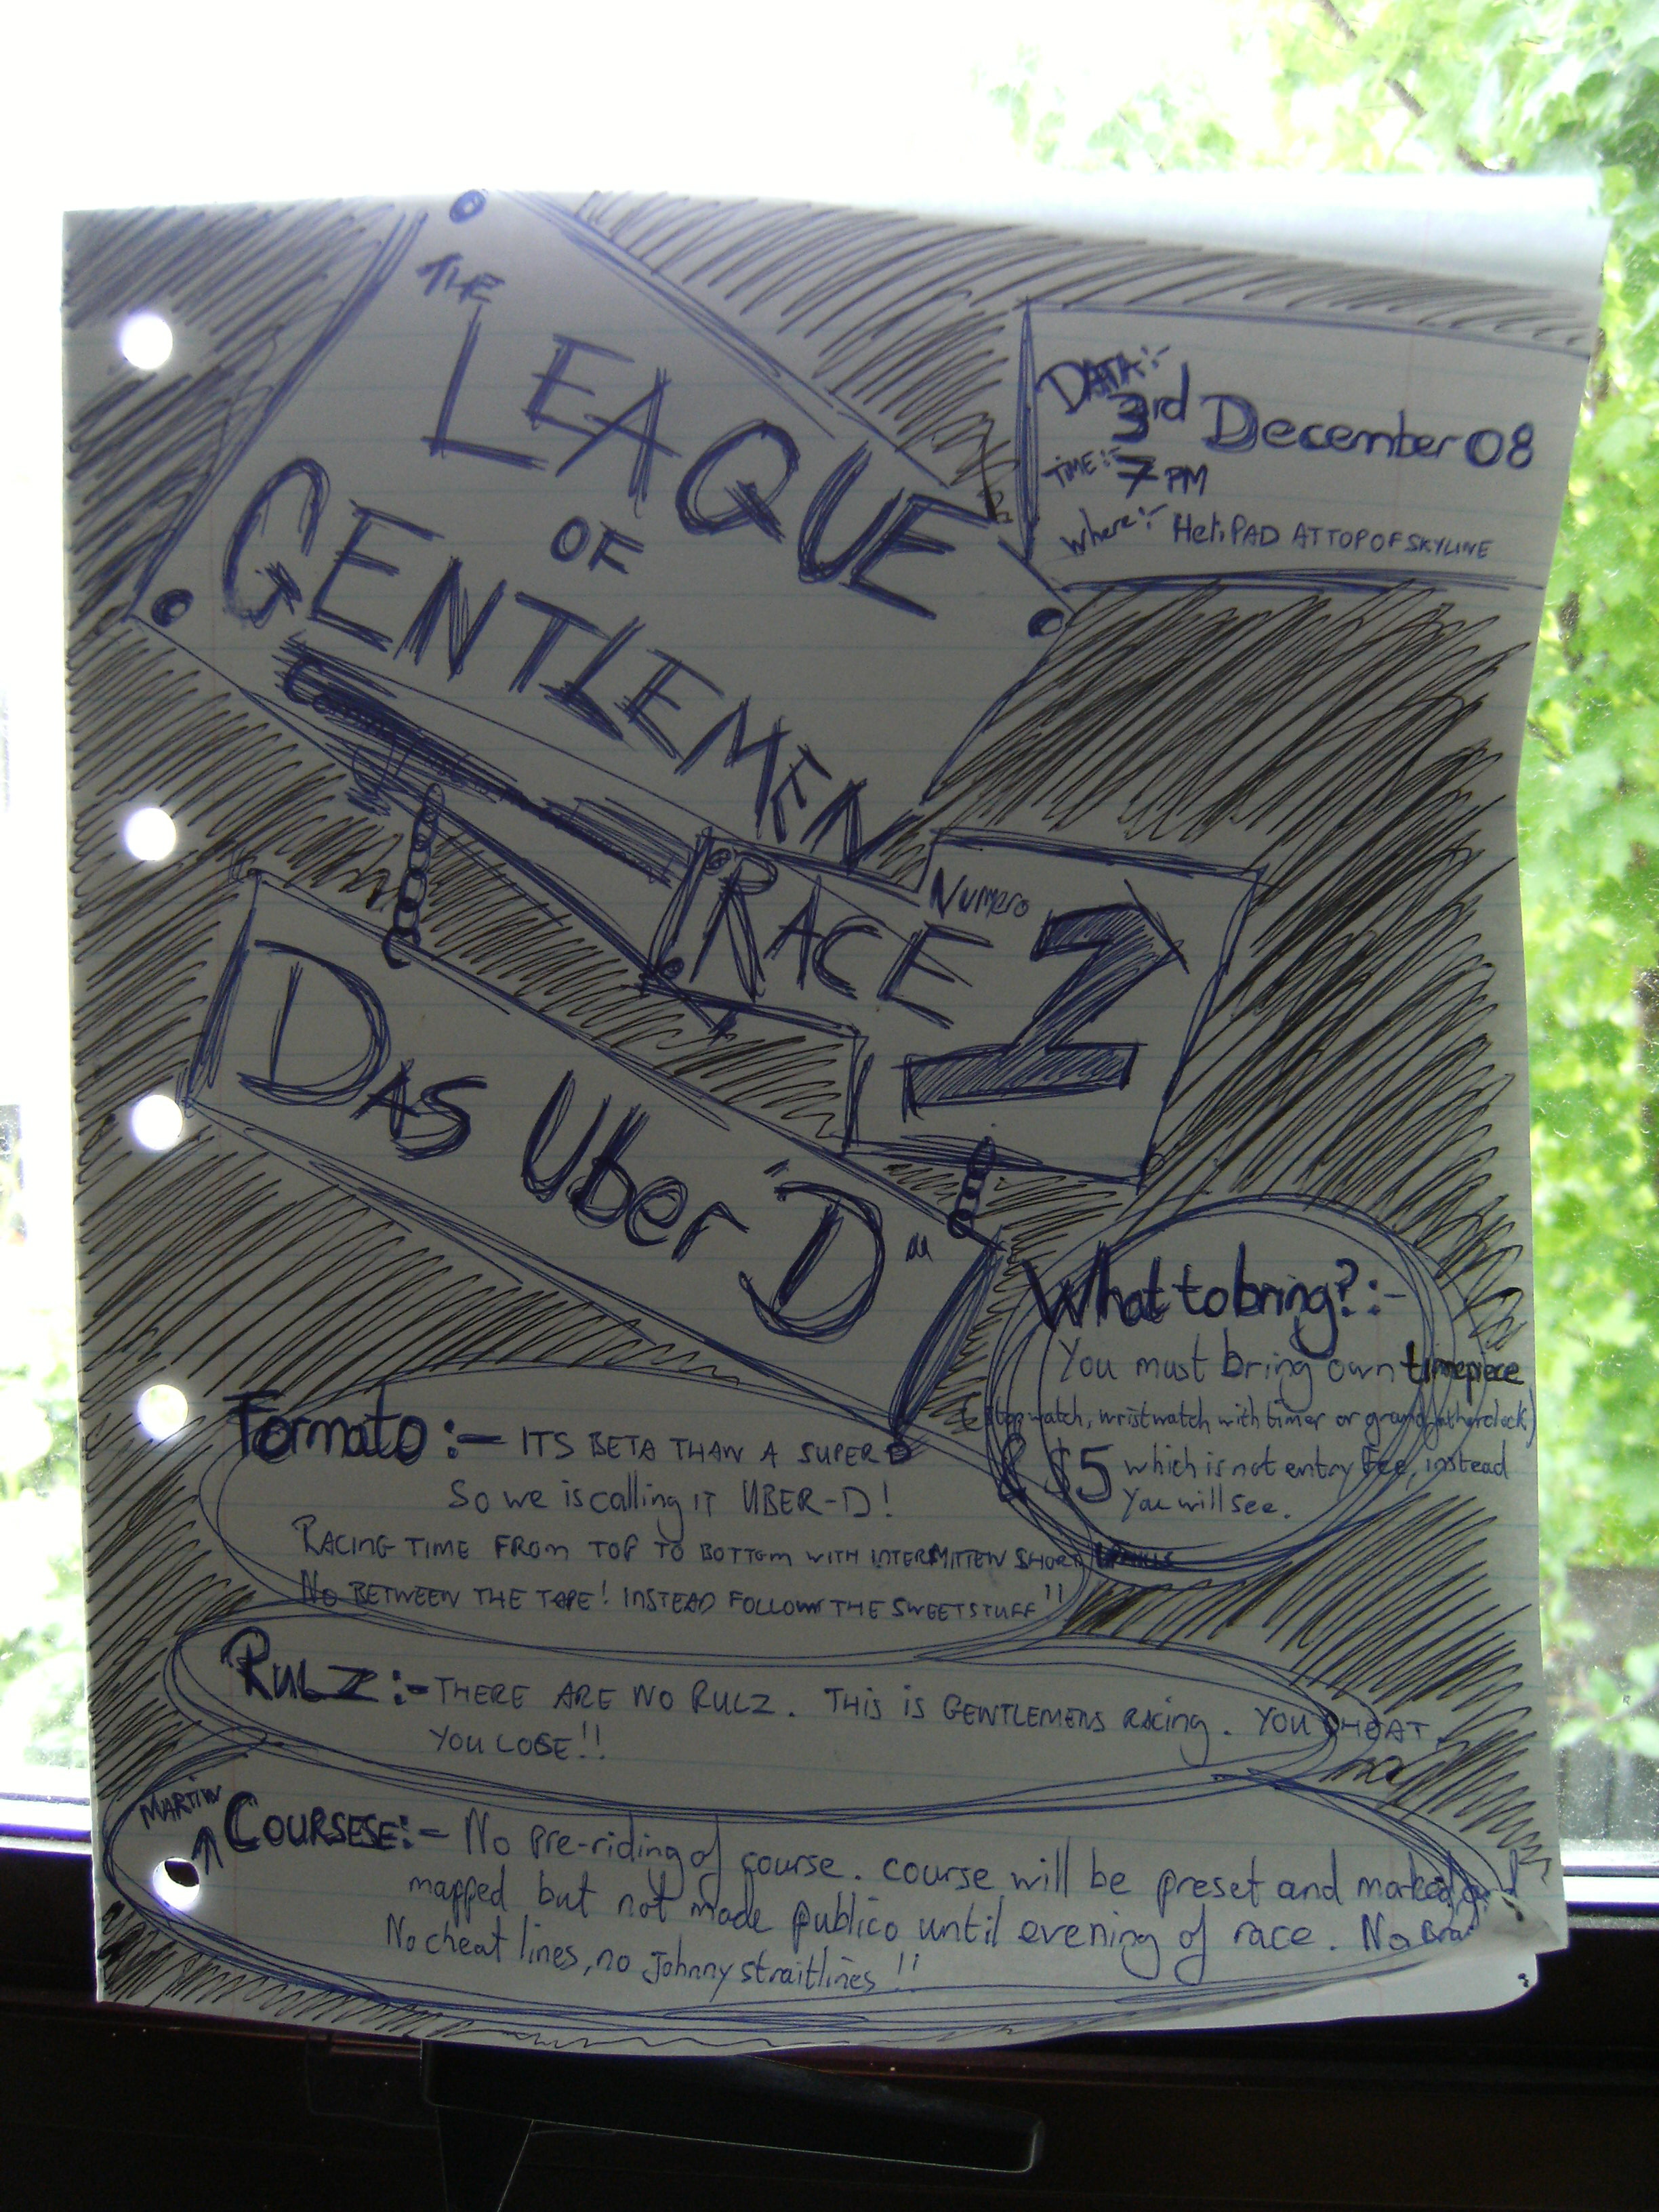 THE
LEAQUE
OF
GENTLEMEN
DATA:-
3rd December 08
TIME:- 7 PM
Where:- HeliPAD AT TOP OF SKYLINE
RACE
Numero
1
DAS Uber "D"
What to bring?:-
You must bring own timepiece
(stopwatch, wristwatch with timer or grandfatherclock)
& $5 which is not entry fee, instead
You will see.
Formato:- ITS BETA THAN A SUPER D
So we is calling IT UBER-D!
RACING TIME FROM TOP TO BOTTOM WITH INTERMITTEN SHORT
NO BETWEEN THE TAPE! INSTEAD FOLLOW THE SWEETSTUFF!!
RULZ:- THERE ARE NO RULZ. THIS IS GENTLEMENS RACING. YOU CHEAT.
YOU LOSE!!
MARTIN
COURSESE:- No pre-riding of course. course will be preset and marked
mapped but not made publico until evening of race. No
No cheat lines, no Johnny straitlines!!